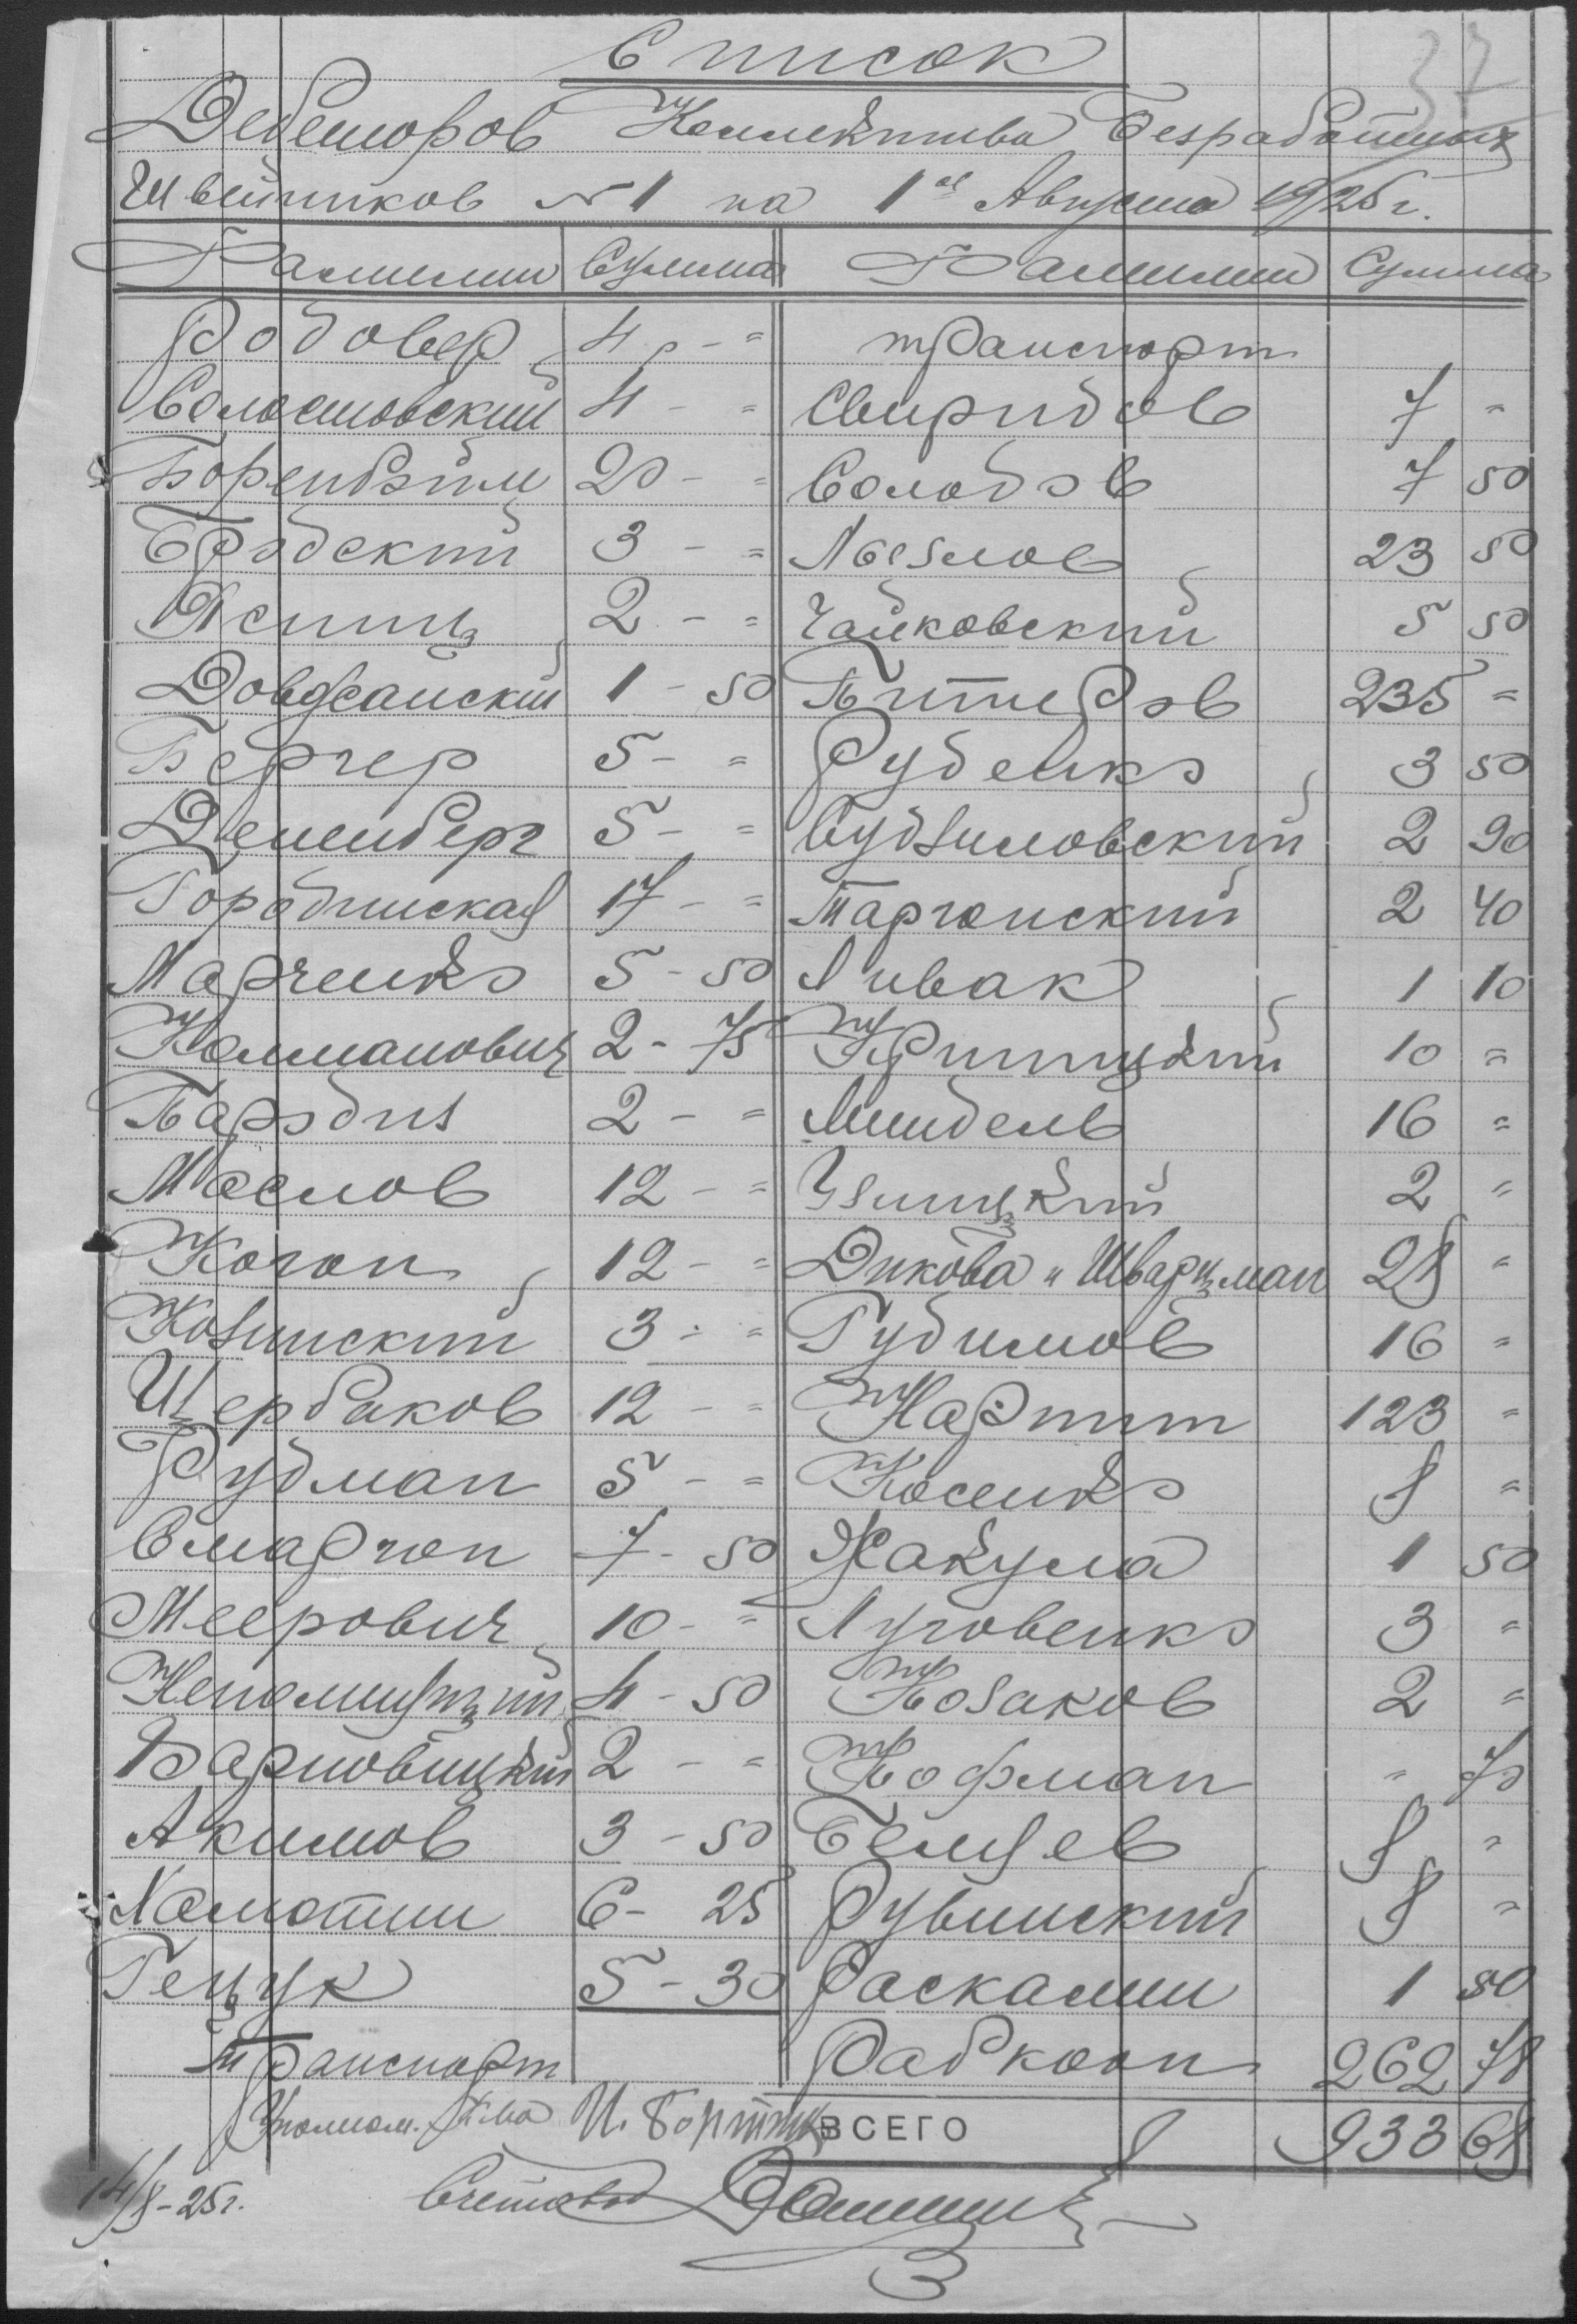 37
Список
Дебеторов Коллектива Безработных
Швейников №1 на 1ое Августа 1925 г.
Фамилии Сумма Фамилии Сумма
Родовер 4 р - = транспорт
Солостовский 4 - = Свиридов 7 =
Боренбойм 20 - = Солодов 7 50
Бродский 3 - = Абезмов 23 50
Ясинц 2 - = Чайковский 5 50
Довджанский 1 - 50 Битеров 235 =
Бергер 5 - = Руденко 3 50
Дененберг 5 - = Судзиловский 2 90
Городинская 17 - = Таргонский 2 40
Марченко 5 - 50 Ливак 1 10
Калманович 2 - 75 Критицкий 10 =
Бародиз 2 - = Миндель 16 =
Маслов 12 - = Узицкий 2 =
Коган 12 - = Дикова и Шварцман 28 =
Козинский 3 - = Гудимов 16 =
Щербаков 12 - = Нарпит 123 =
Рудман 5 - = Косенко 8 =
Смаргон 7 - 50 Жакула 1 50
Меерович 10 - = Луговенко 3 =
Непомнящий 4 - 50 Козаков 2 =
Варновицкий 2 - = Кофман = 75
Акимов 3 - 50 Беляев 8 =
Хамотин 6 - 25 Рувинский 8 =
Гецук 5 - 30 Раскалин 1 50
транспорт Рабкооп 262 78
Уполном. К-ва И. Бортник ВСЕГО 933 68
14/8-25 г. Счетовод